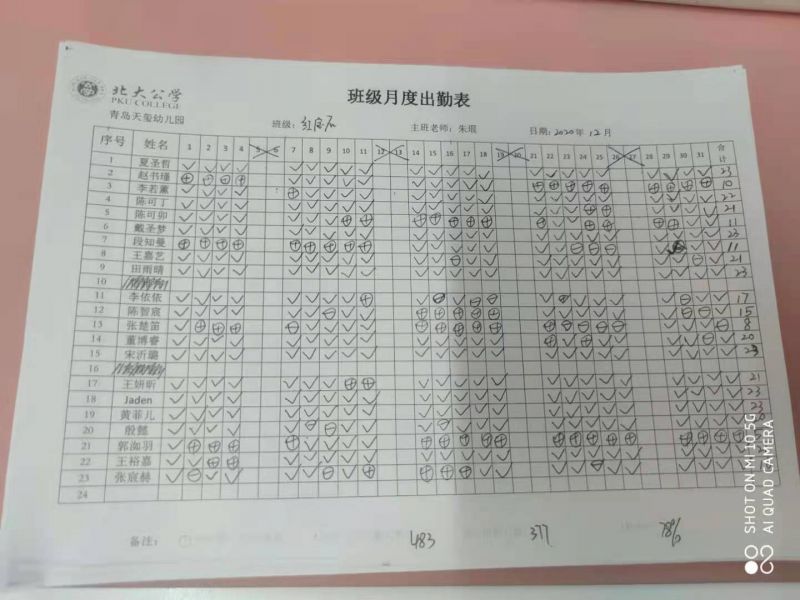 北大公学
PKU COLLEGE
青岛天玺幼儿园
班级月度出勤表
班级: 红宝石 主班老师: 朱琨 日期: 2020年12月
序号 姓名 1 2 3 4 5 6 7 8 9 10 11 12 13 14 15 16 17 18 19 20 21 22 23 24 25 26 27 28 29 30 31 合计
1 夏圣哲 23
2 赵书瑾
3 李若薰 10
4 陈可丁 22
5 陈可卯 21
6 戴圣梦 11
7 段知曼 11
8 王嘉艺 21
9 田雨晴 23
10
11 李依依 17
12 陈智宸 15
13 张楚笛 8
14 董博睿 20
15 宋沂璐 23
16
17 王妍昕 21
18 Jaden 23
19 黄菲儿 23
20 殷懿
21 郭洳羽
22 王裕嘉
23 张宸赫
24
备注: 483 377 78%
SHOT ON MI 10 5G
AI QUAD CAMERA